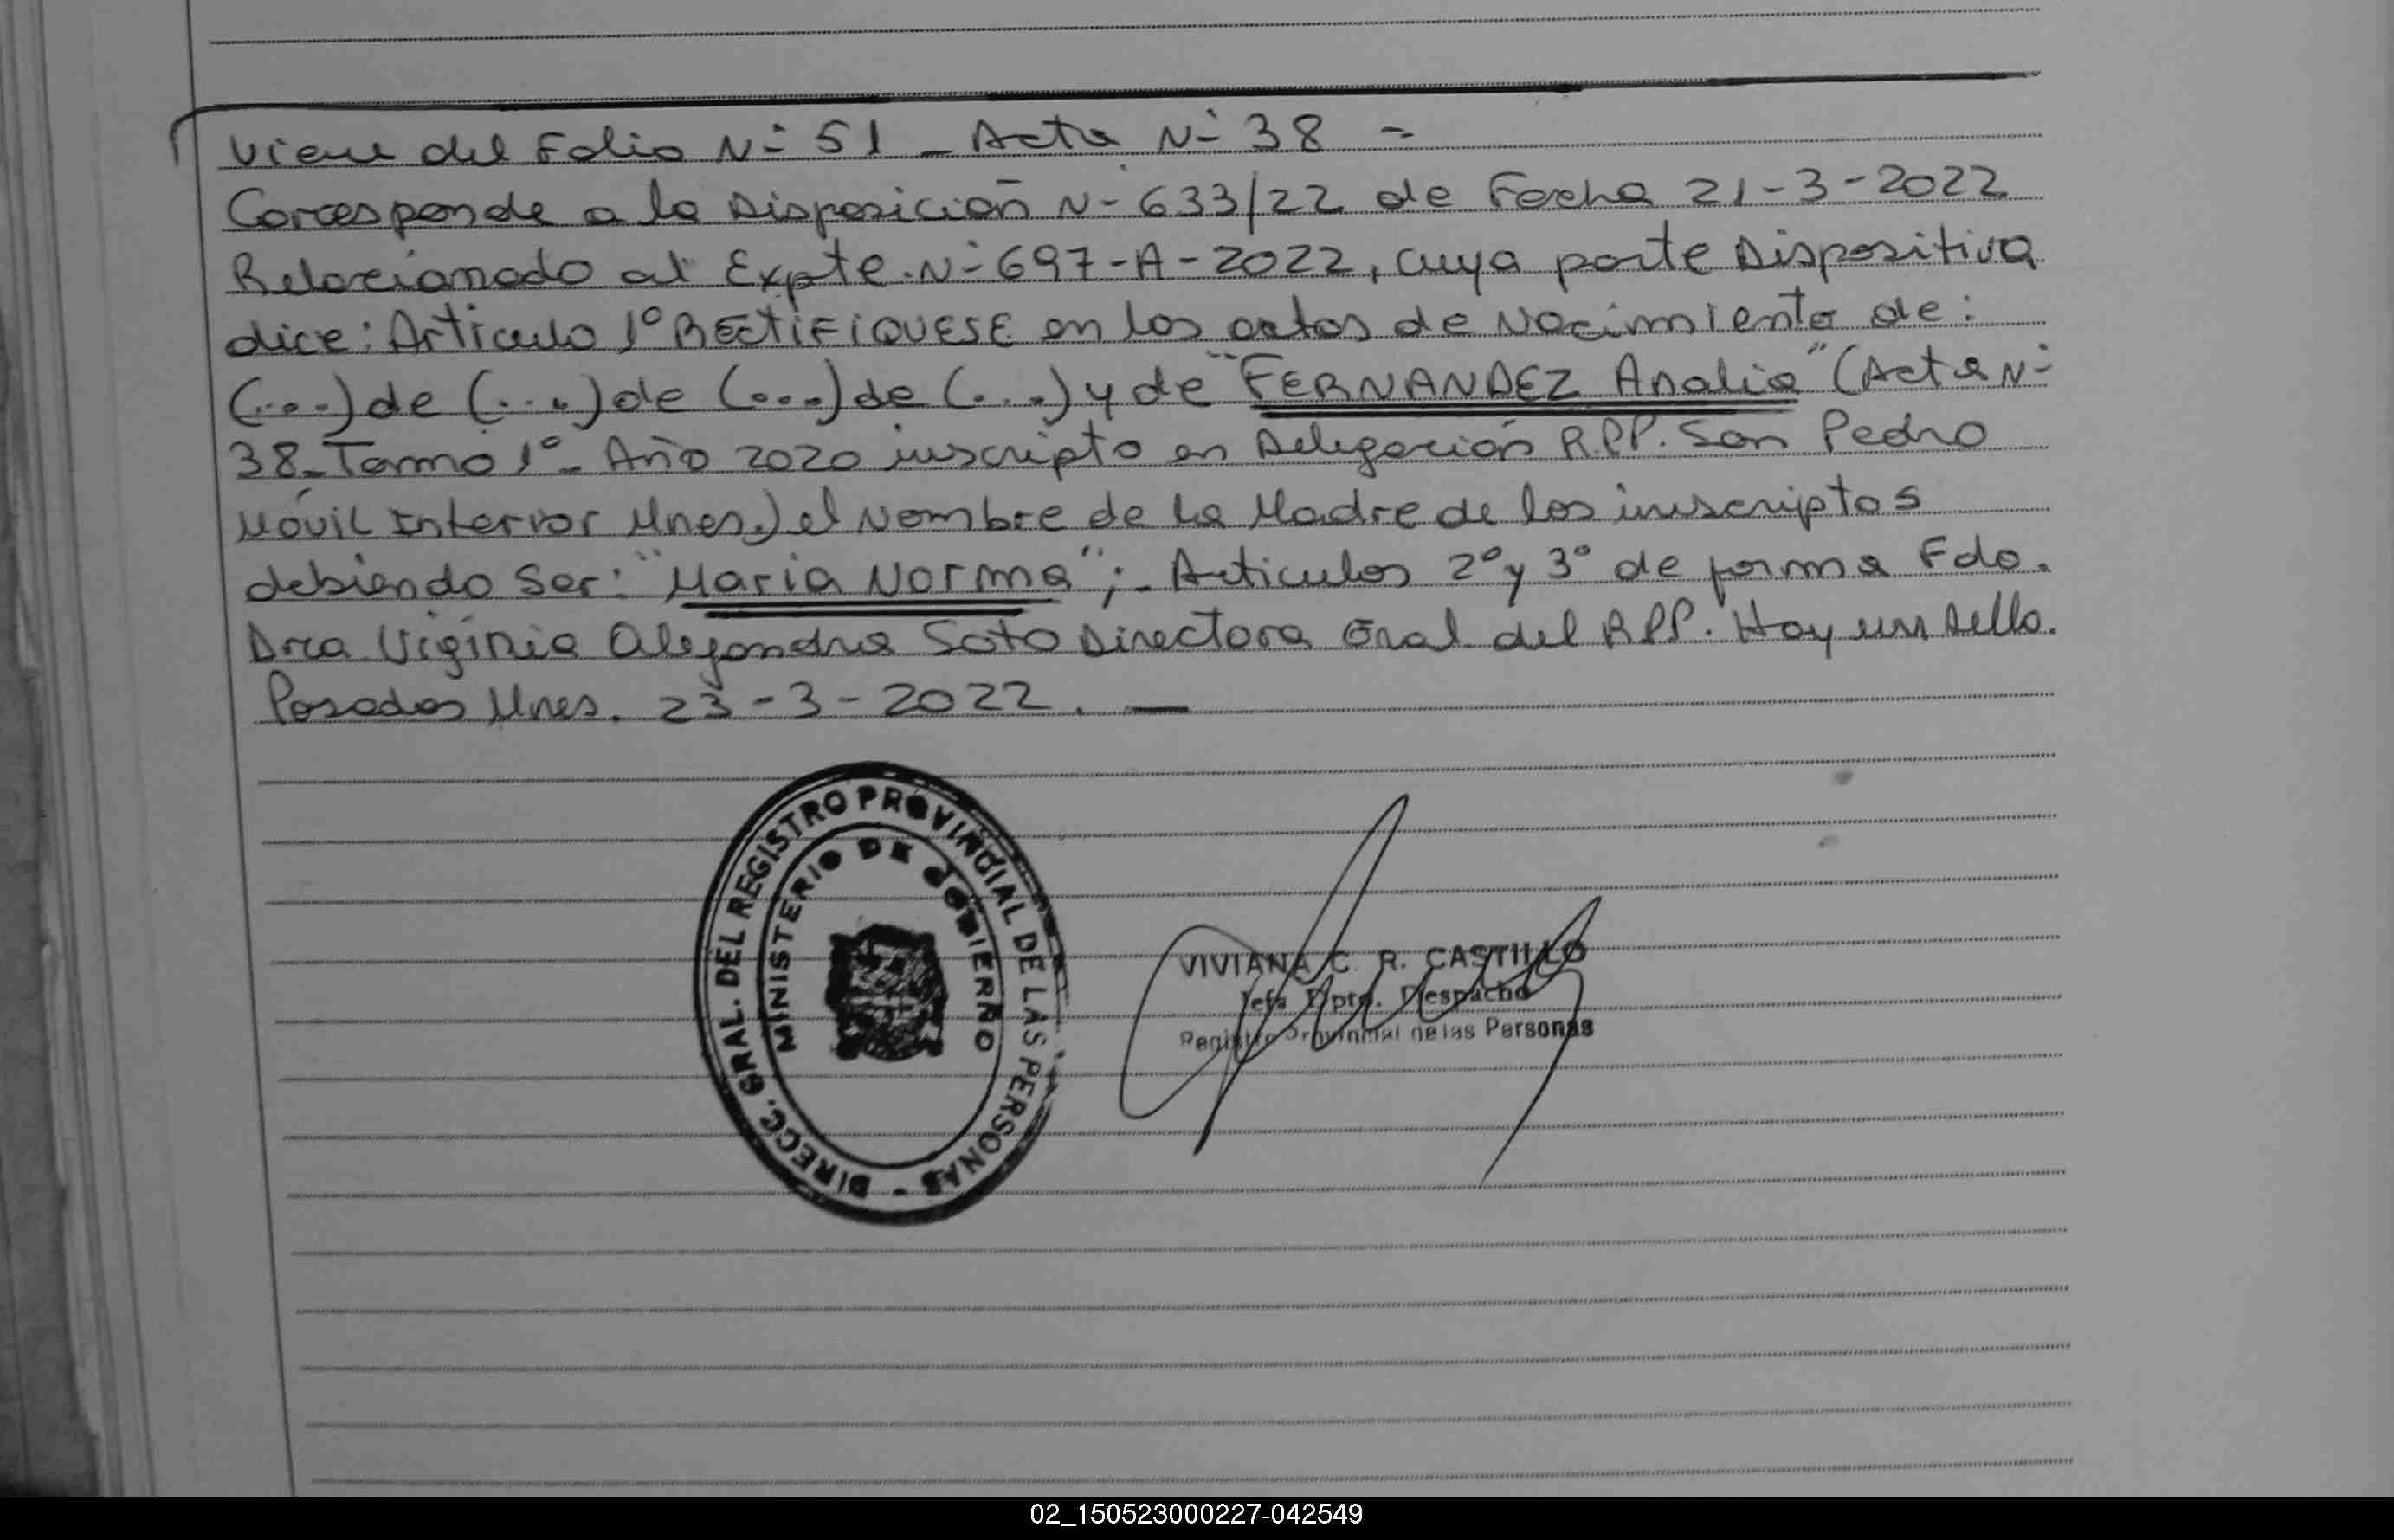 Viene del Folio N- 51 - Acta N- 38 -
Corresponde a la Disposición N- 633/22 de Fecha 21-3-2022
Relacionado al Expte. N- 697-A-2022, cuya parte Dispositiva
dice: Articulo 1º RECTIFIQUESE en las actas de Nacimiento de:
(...) de (...) de (...) de (...) y de "FERNANDEZ Analia" (Acta N-
38_ Tomo 1º_ Año 2020 inscripto en Delegación R.P.P. San Pedro
Móvil Interior Mnes.) el Nombre de la Madre de los inscriptos
debiendo ser: "Maria Norma"; - Articulos 2º y 3º de forma Fdo.
Dra Viginia Alejandra Soto Directora Gral. del RPP. Hay un sello.
Posadas Mnes. 23-3-2022. —
DIRECC. GRAL. DEL REGISTRO PROVINCIAL DE LAS PERSONAS -
MINISTERIO DE GOBIERNO
VIVIANA C. R. CASTILLO
Jefa Dpto. Despacho
Registro Provincial de las Personas
02_150523000227-042549